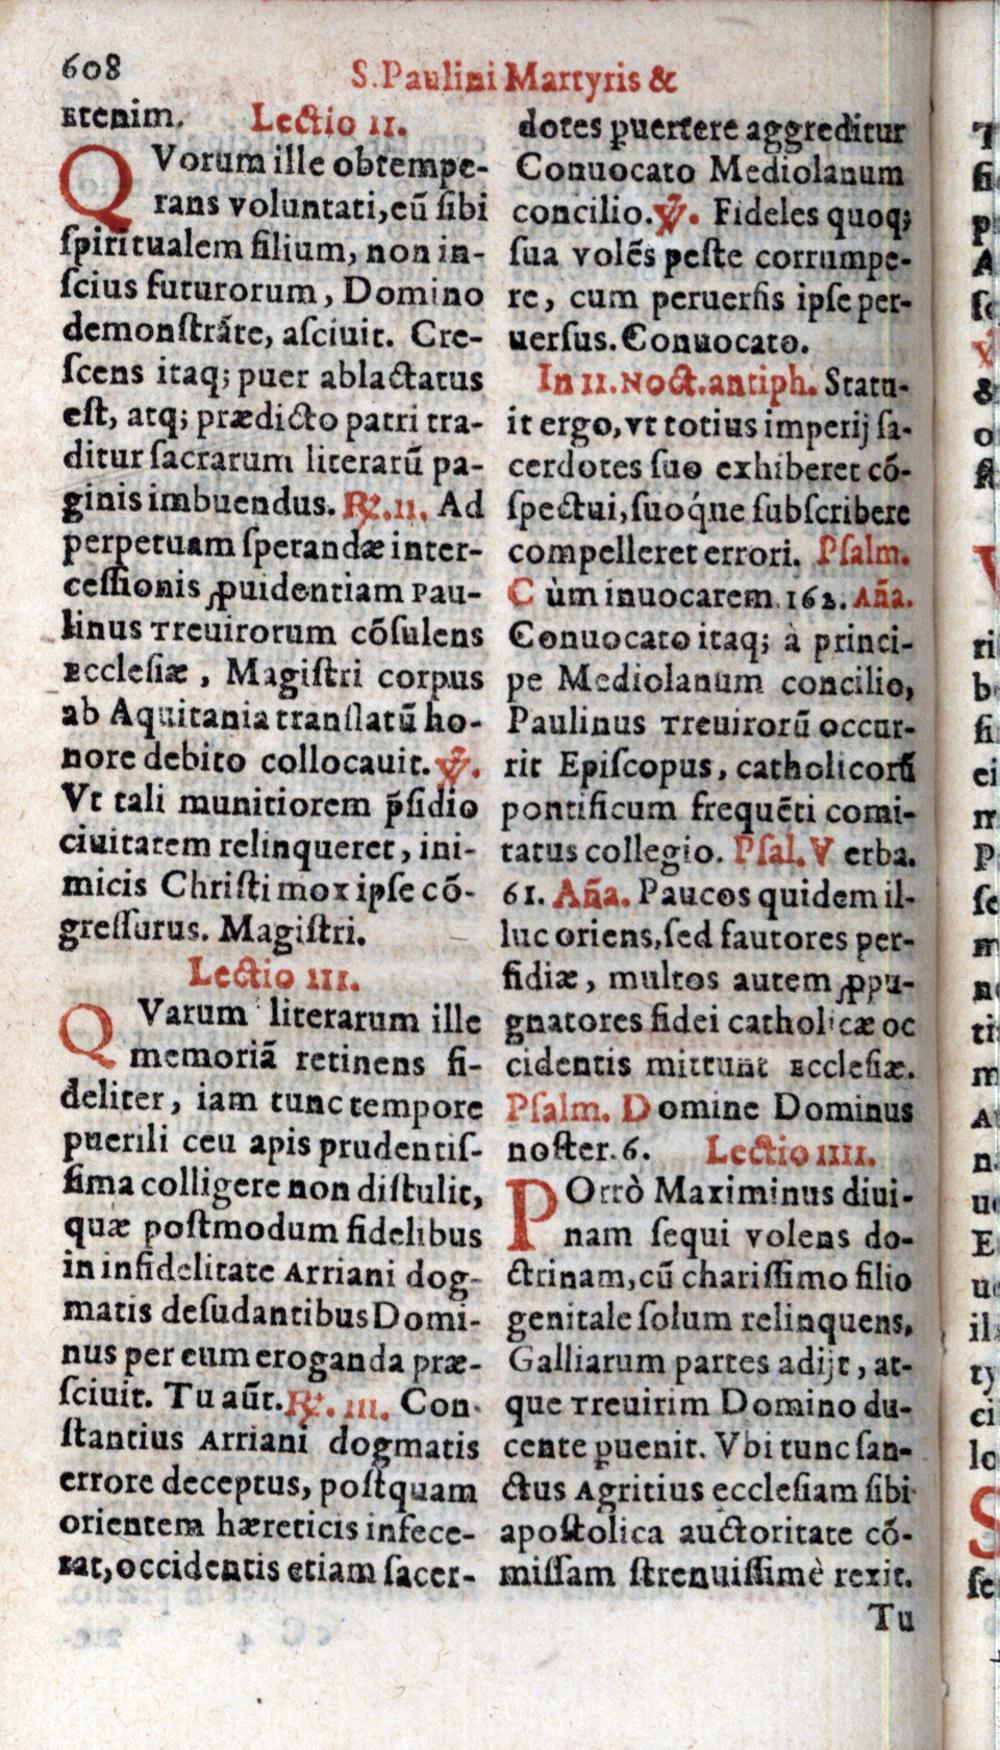 608
S. Paulini Martyris &
Etenim. Lectio II.
QVorum ille obtempe-
rans voluntati, eũ ſibi
ſpiritualem filium, non in-
ſcius futurorum, Domino
demonſtrãte, aſciuit. Cre-
ſcens itaq; puer ablactatus
eſt, atq; prædicto patri tra-
ditur ſacrarum literarũ pa-
ginis imbuendus. ℟. II. Ad
perpetuam ſperandæ inter-
ceſſionis ꝓuidentiam Pau-
linus Treuirorum cõſulens
Eccleſiæ, Magiſtri corpus
ab Aquitania tranſlatũ ho-
nore debito collocauit. ℣.
Vt tali munitiorem p̃ſidio
ciuitatem relinqueret, ini-
micis Chriſti mox ipſe cõ-
greſſurus. Magiſtri.
Lectio III.
QVarum literarum ille
memoriã retinens fi-
deliter, iam tunc tempore
puerili ceu apis prudentiſ-
ſima colligere non diſtulit,
quæ poſtmodum fidelibus
in infidelitate Arriani dog-
matis deſudantibus Domi-
nus per eum eroganda præ-
ſciuit. Tu aũt. ℟. III. Con-
ſtantius Arriani dogmatis
errore deceptus, poſtquam
orientem hæreticis infece-
rat, occidentis etiam ſacer-
dotes ꝑuertere aggreditur
Conuocato Mediolanum
concilio. ℣. Fideles quoq;
ſua volẽs peſte corrumpe-
re, cum peruerſis ipſe per-
uerſus. Conuocato.
In II. Noct. antiph. Statu-
it ergo, vt totius imperij ſa-
cerdotes ſuo exhiberet cõ-
ſpectui, ſuoq́ue ſubſcribere
compelleret errori. Pſalm.
Cùm inuocarem. 162. Aña.
Conuocato itaq; à princi-
pe Mediolanum concilio,
Paulinus Treuirorũ occur-
rit Epiſcopus, catholicorũ
pontificum frequẽti comi-
tatus collegio. Pſal. Verba.
61. Aña. Paucos quidem il-
luc oriens, ſed fautores per-
fidiæ, multos autem ꝓpu-
gnatores fidei catholicæ oc
cidentis mittunt Eccleſiæ.
Pſalm. Domine Dominus
noſter. 6. Lectio IIII.
POrrò Maximinus diui-
nam ſequi volens do-
ctrinam, cũ chariſſimo filio
genitale ſolum relinquens,
Galliarum partes adijt, at-
que Treuirim Domino du-
cente ꝑuenit. Vbi tunc ſan-
ctus Agritius eccleſiam ſibi
apoſtolica auctoritate cõ-
miſſam ſtrenuiſſimè rexit.
Tu